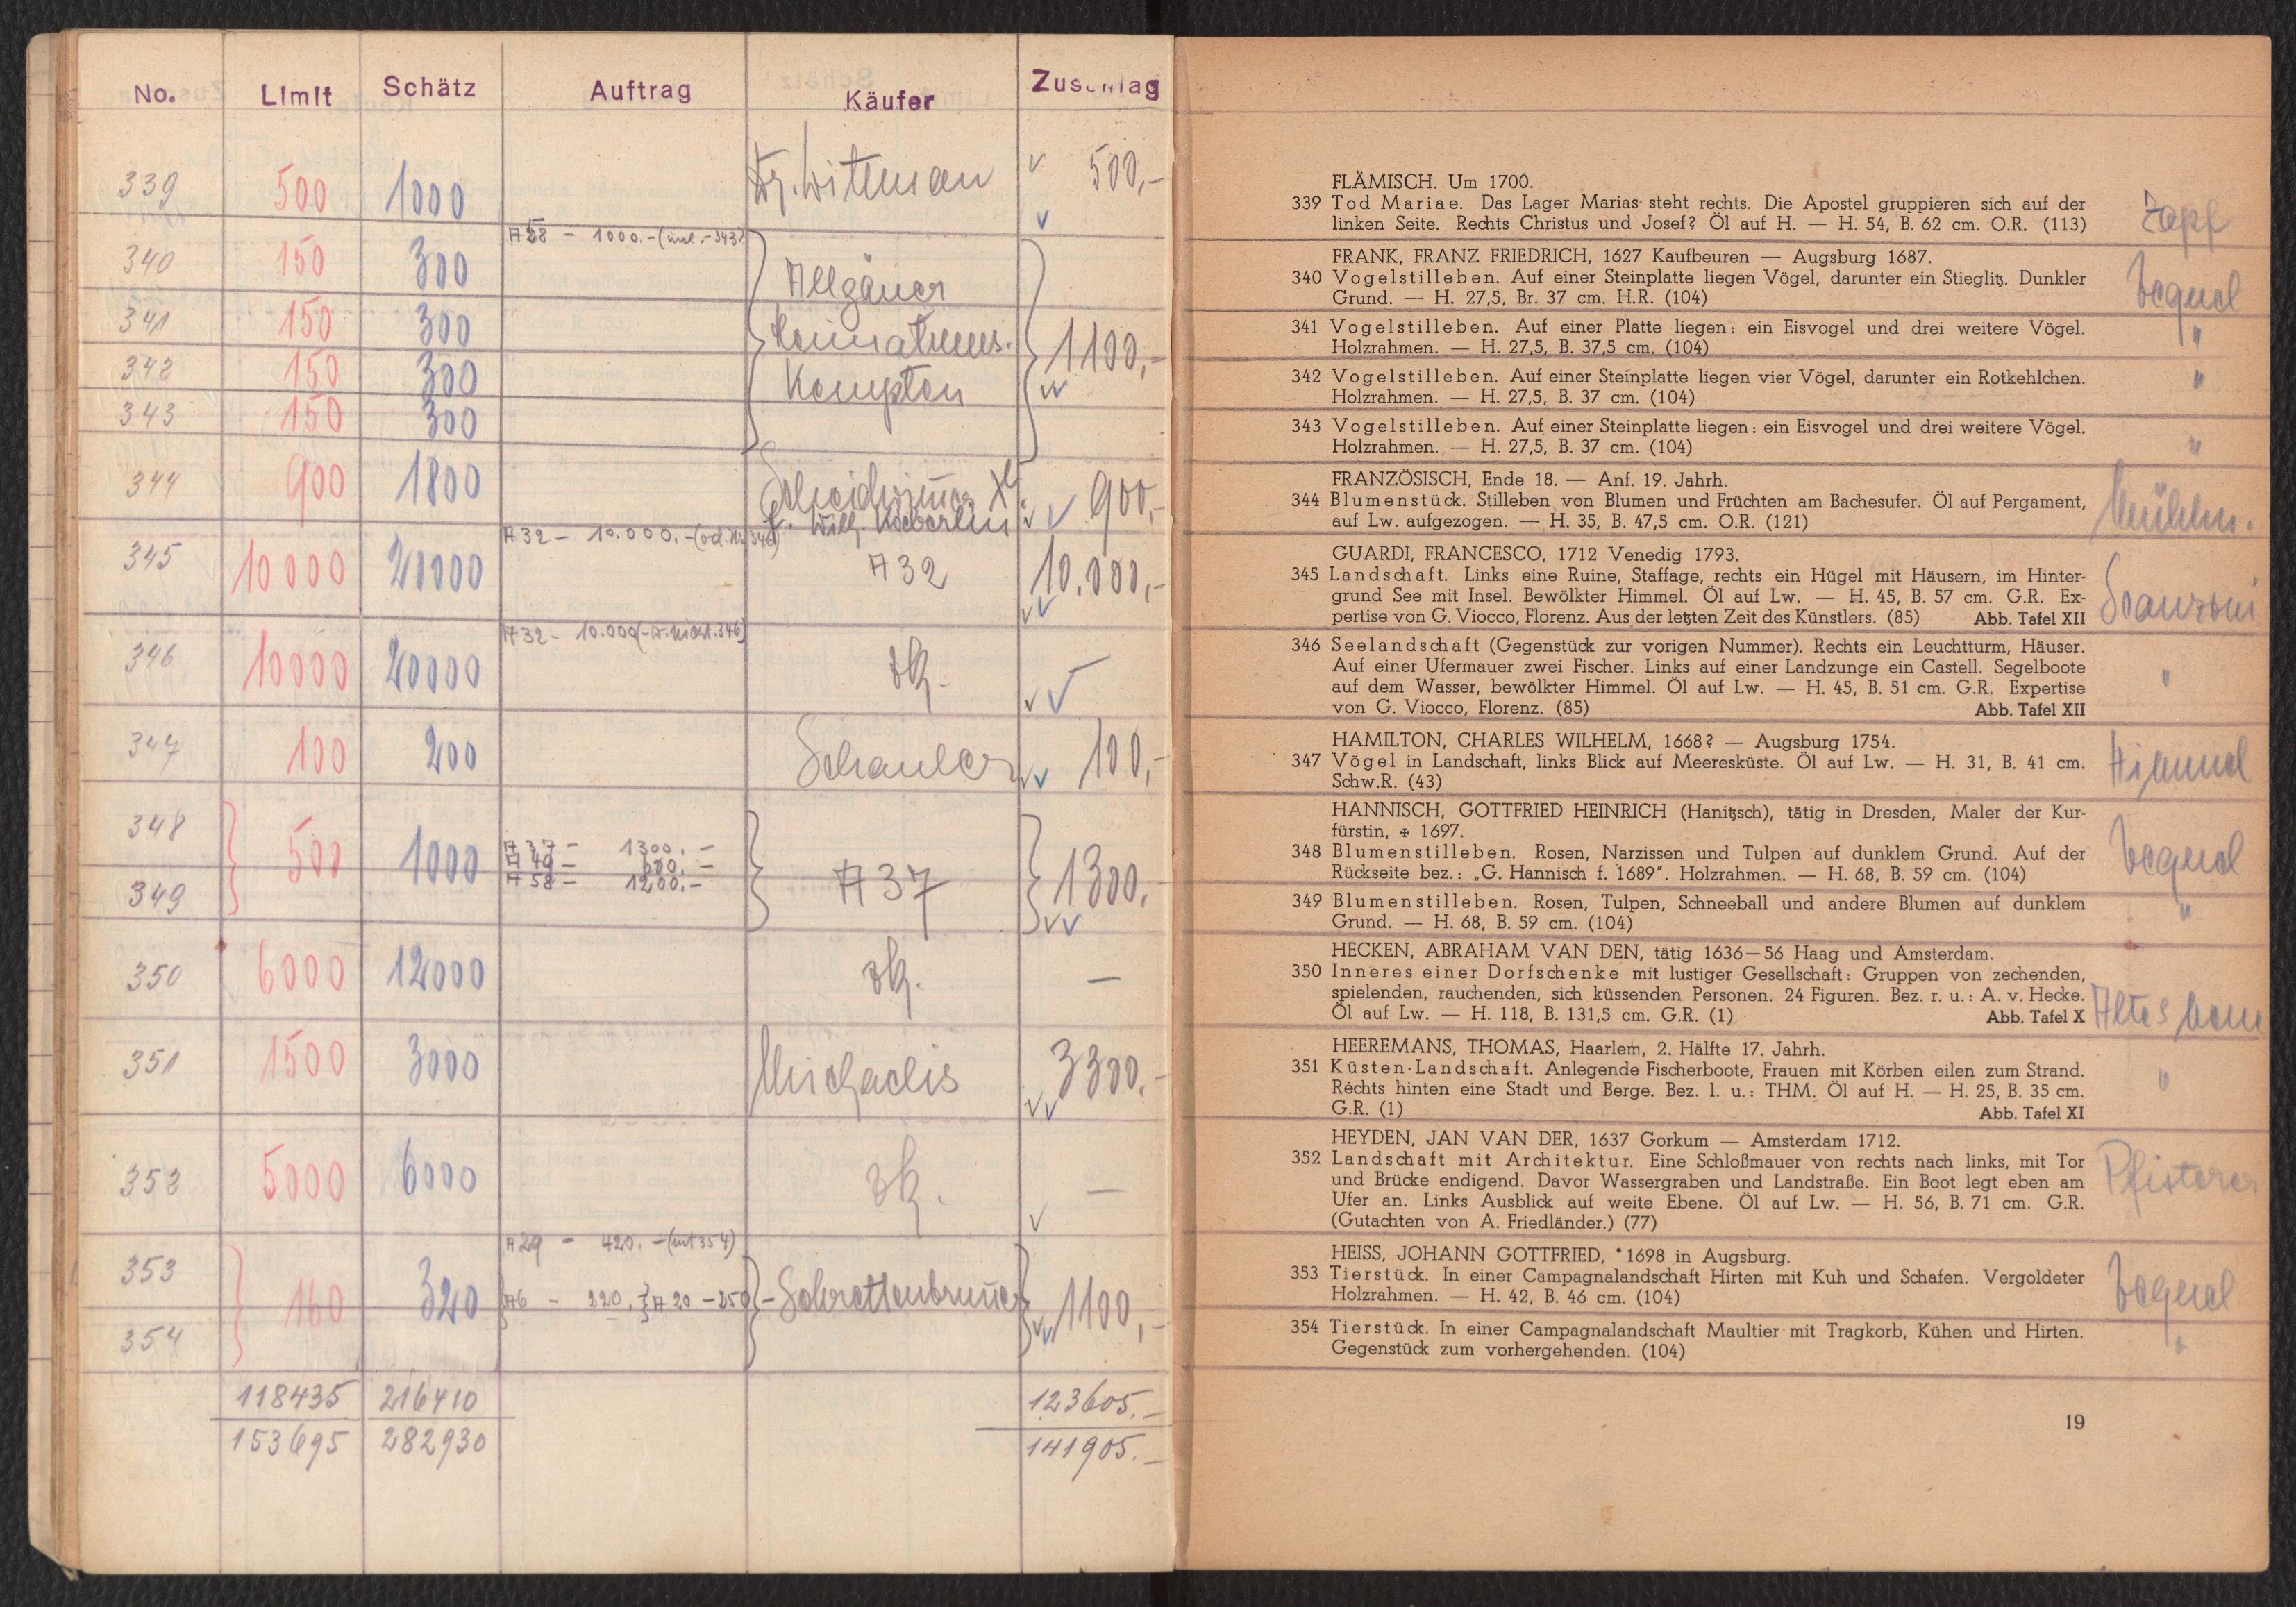 No. Limit Schätz Auftrag Käufer Zuschlag
339 500 1000 Dr. Wittman 500,-
A 58 - 1000.- (incl. -343)
340 150 300 Allgäuer
341 150 300 Heimatmus. 1100,-
342 150 300 Kempten
343 150 300
344 900 1800 900,-
A 32 - 10.000.- (od. Nr. 346)
345 10000 20000 A 32 10.000,-
A 32 - 10.000
346 10000 20000 zk.
347 100 200 100,-
348 500 1000 A 37 - 1300.- A 37 1300.
A 49 - 600.-
349 A 58 - 1200.-
350 6000 12000 zk. —
351 1500 3000 Michaelis 3300.-
352 5000 6000 zk. —
A 29 - 420.- (mit 354)
353 160 320 A6 - 220. A 20 - 250 Schrettenbrunner 1100,-
354
118435 216410 123605.-
153695 282930 141905.-
FLÄMISCH. Um 1700.
339 Tod Mariae. Das Lager Marias steht rechts. Die Apostel gruppieren sich auf der Zapf
linken Seite. Rechts Christus und Josef? Öl auf H. — H. 54, B. 62 cm. O.R. (113)
FRANK, FRANZ FRIEDRICH, 1627 Kaufbeuren — Augsburg 1687.
340 Vogelstilleben. Auf einer Steinplatte liegen Vögel, darunter ein Stieglitz. Dunkler
Grund. — H. 27,5, Br. 37 cm. H.R. (104)
341 Vogelstilleben. Auf einer Platte liegen: ein Eisvogel und drei weitere Vögel. "
Holzrahmen. — H. 27,5, B. 37,5 cm. (104)
342 Vogelstilleben. Auf einer Steinplatte liegen vier Vögel, darunter ein Rotkehlchen. "
Holzrahmen. — H. 27,5, B. 37 cm. (104)
343 Vogelstilleben. Auf einer Steinplatte liegen: ein Eisvogel und drei weitere Vögel.
Holzrahmen. — H. 27,5, B. 37 cm. (104) "
FRANZÖSISCH, Ende 18. — Anf. 19. Jahrh.
344 Blumenstück. Stilleben von Blumen und Früchten am Bachesufer. Öl auf Pergament,
auf Lw. aufgezogen. — H. 35, B. 47,5 cm. O.R. (121)
GUARDI, FRANCESCO, 1712 Venedig 1793.
345 Landschaft. Links eine Ruine, Staffage, rechts ein Hügel mit Häusern, im Hinter-
grund See mit Insel. Bewölkter Himmel. Öl auf Lw. — H. 45, B. 57 cm. G.R. Ex- Scanzoni
pertise von G. Viocco, Florenz. Aus der letzten Zeit des Künstlers. (85) Abb. Tafel XII
346 Seelandschaft (Gegenstück zur vorigen Nummer). Rechts ein Leuchtturm, Häuser.
Auf einer Ufermauer zwei Fischer. Links auf einer Landzunge ein Castell. Segelboote "
auf dem Wasser, bewölkter Himmel. Öl auf Lw. — H. 45, B. 51 cm. G.R. Expertise
von G. Viocco, Florenz. (85) Abb. Tafel XII
HAMILTON, CHARLES WILHELM, 1668? — Augsburg 1754.
347 Vögel in Landschaft, links Blick auf Meeresküste. Öl auf Lw. — H. 31, B. 41 cm.
Schw.R. (43)
HANNISCH, GOTTFRIED HEINRICH (Hanitzsch), tätig in Dresden, Maler der Kur-
fürstin, ✠ 1697.
348 Blumenstilleben. Rosen, Narzissen und Tulpen auf dunklem Grund. Auf der
Rückseite bez.: „G. Hannisch f. 1689". Holzrahmen. — H. 68, B. 59 cm. (104)
349 Blumenstilleben. Rosen, Tulpen, Schneeball und andere Blumen auf dunklem "
Grund. — H. 68, B. 59 cm. (104)
HECKEN, ABRAHAM VAN DEN, tätig 1636—56 Haag und Amsterdam.
350 Inneres einer Dorfschenke mit lustiger Gesellschaft: Gruppen von zechenden,
spielenden, rauchenden, sich küssenden Personen. 24 Figuren. Bez. r. u.: A. v. Hecke.
Öl auf Lw. — H. 118, B. 131,5 cm. G.R. (1) Abb. Tafel X Altes
HEEREMANS, THOMAS, Haarlem, 2. Hälfte 17. Jahrh.
351 Küsten-Landschaft. Anlegende Fischerboote, Frauen mit Körben eilen zum Strand. "
Rechts hinten eine Stadt und Berge. Bez. l. u.: THM. Öl auf H. — H. 25, B. 35 cm.
G.R. (1) Abb. Tafel XI
HEYDEN, JAN VAN DER, 1637 Gorkum — Amsterdam 1712.
352 Landschaft mit Architektur. Eine Schloßmauer von rechts nach links, mit Tor Pfisterer
und Brücke endigend. Davor Wassergraben und Landstraße. Ein Boot legt eben am
Ufer an. Links Ausblick auf weite Ebene. Öl auf Lw. — H. 56, B. 71 cm. G.R.
(Gutachten von A. Friedländer.) (77)
HEISS, JOHANN GOTTFRIED, *1698 in Augsburg.
353 Tierstück. In einer Campagnalandschaft Hirten mit Kuh und Schafen. Vergoldeter
Holzrahmen. — H. 42, B. 46 cm. (104)
354 Tierstück. In einer Campagnalandschaft Maultier mit Tragkorb, Kühen und Hirten. "
Gegenstück zum vorhergehenden. (104)
19